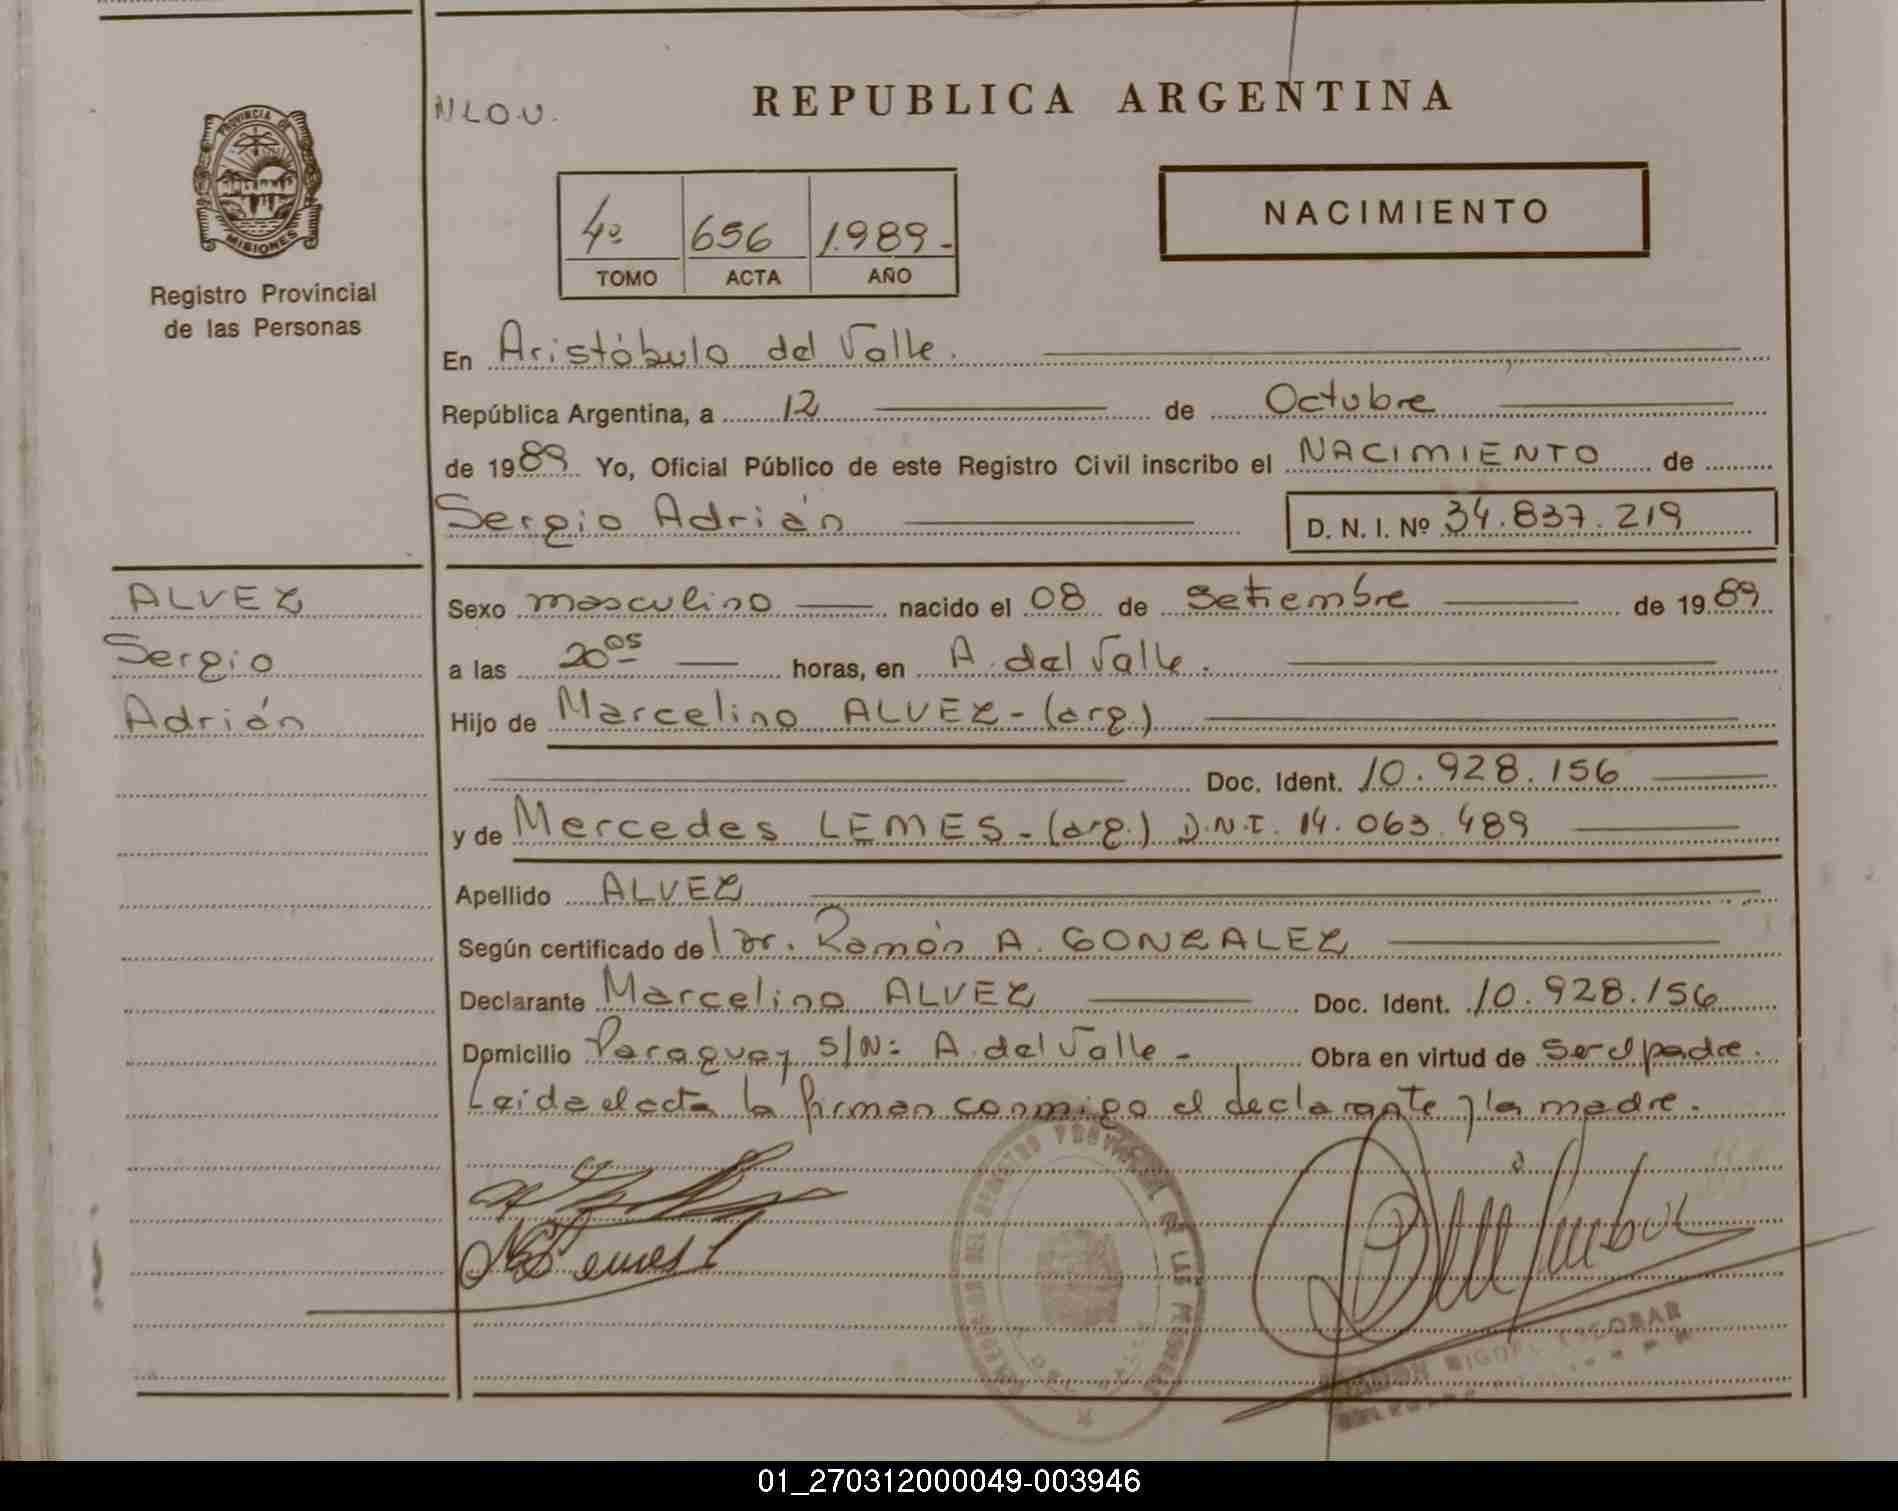 REPUBLICA ARGENTINA
N L O.U.
PROVINCIA DE
MISIONES
Registro Provincial
de las Personas
4º 656 1.989-
TOMO ACTA AÑO
NACIMIENTO
En Aristóbulo del Valle.
República Argentina, a 12 de Octubre
de 1989 Yo, Oficial Público de este Registro Civil inscribo el NACIMIENTO de
Sergio Adrián D. N. I. Nº 34.837.219
ALVEZ
Sergio
Adrián
Sexo masculino nacido el 08 de Setiembre de 1989
a las 20 05 horas, en A. del Valle.
Hijo de Marcelino ALVEZ - (arg.)
Doc. Ident. 10.928.156
y de Mercedes LEMES - (arg.) D.N.I. 14.063.489
Apellido ALVEZ
Según certificado de Dr. Ramón A. GONZALEZ
Declarante Marcelino ALVEZ Doc. Ident. 10.928.156
Domicilio Paraguay S/N: A. del Valle - Obra en virtud de ser el padre.
Leida el acta la firman conmigo el declarante y la madre.
DEL REGISTRO PROVINCIAL DE LAS PERSONAS
MIGUEL ESCOBAR
01_270312000049-003946